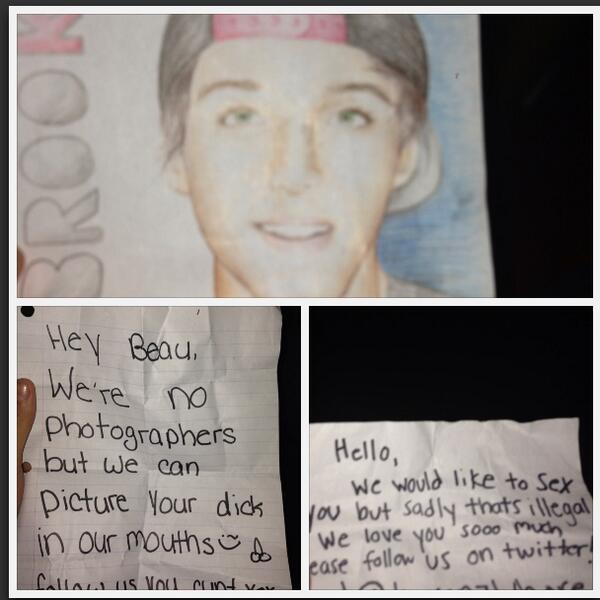 BROOK
Hey Beau,
We're no
photographers
but we can
picture your dick
in our mouths
follow us you cunt
Hello,
we would like to sex
you but sadly thats illegal
we love you sooo much
ease follow us on twitter!